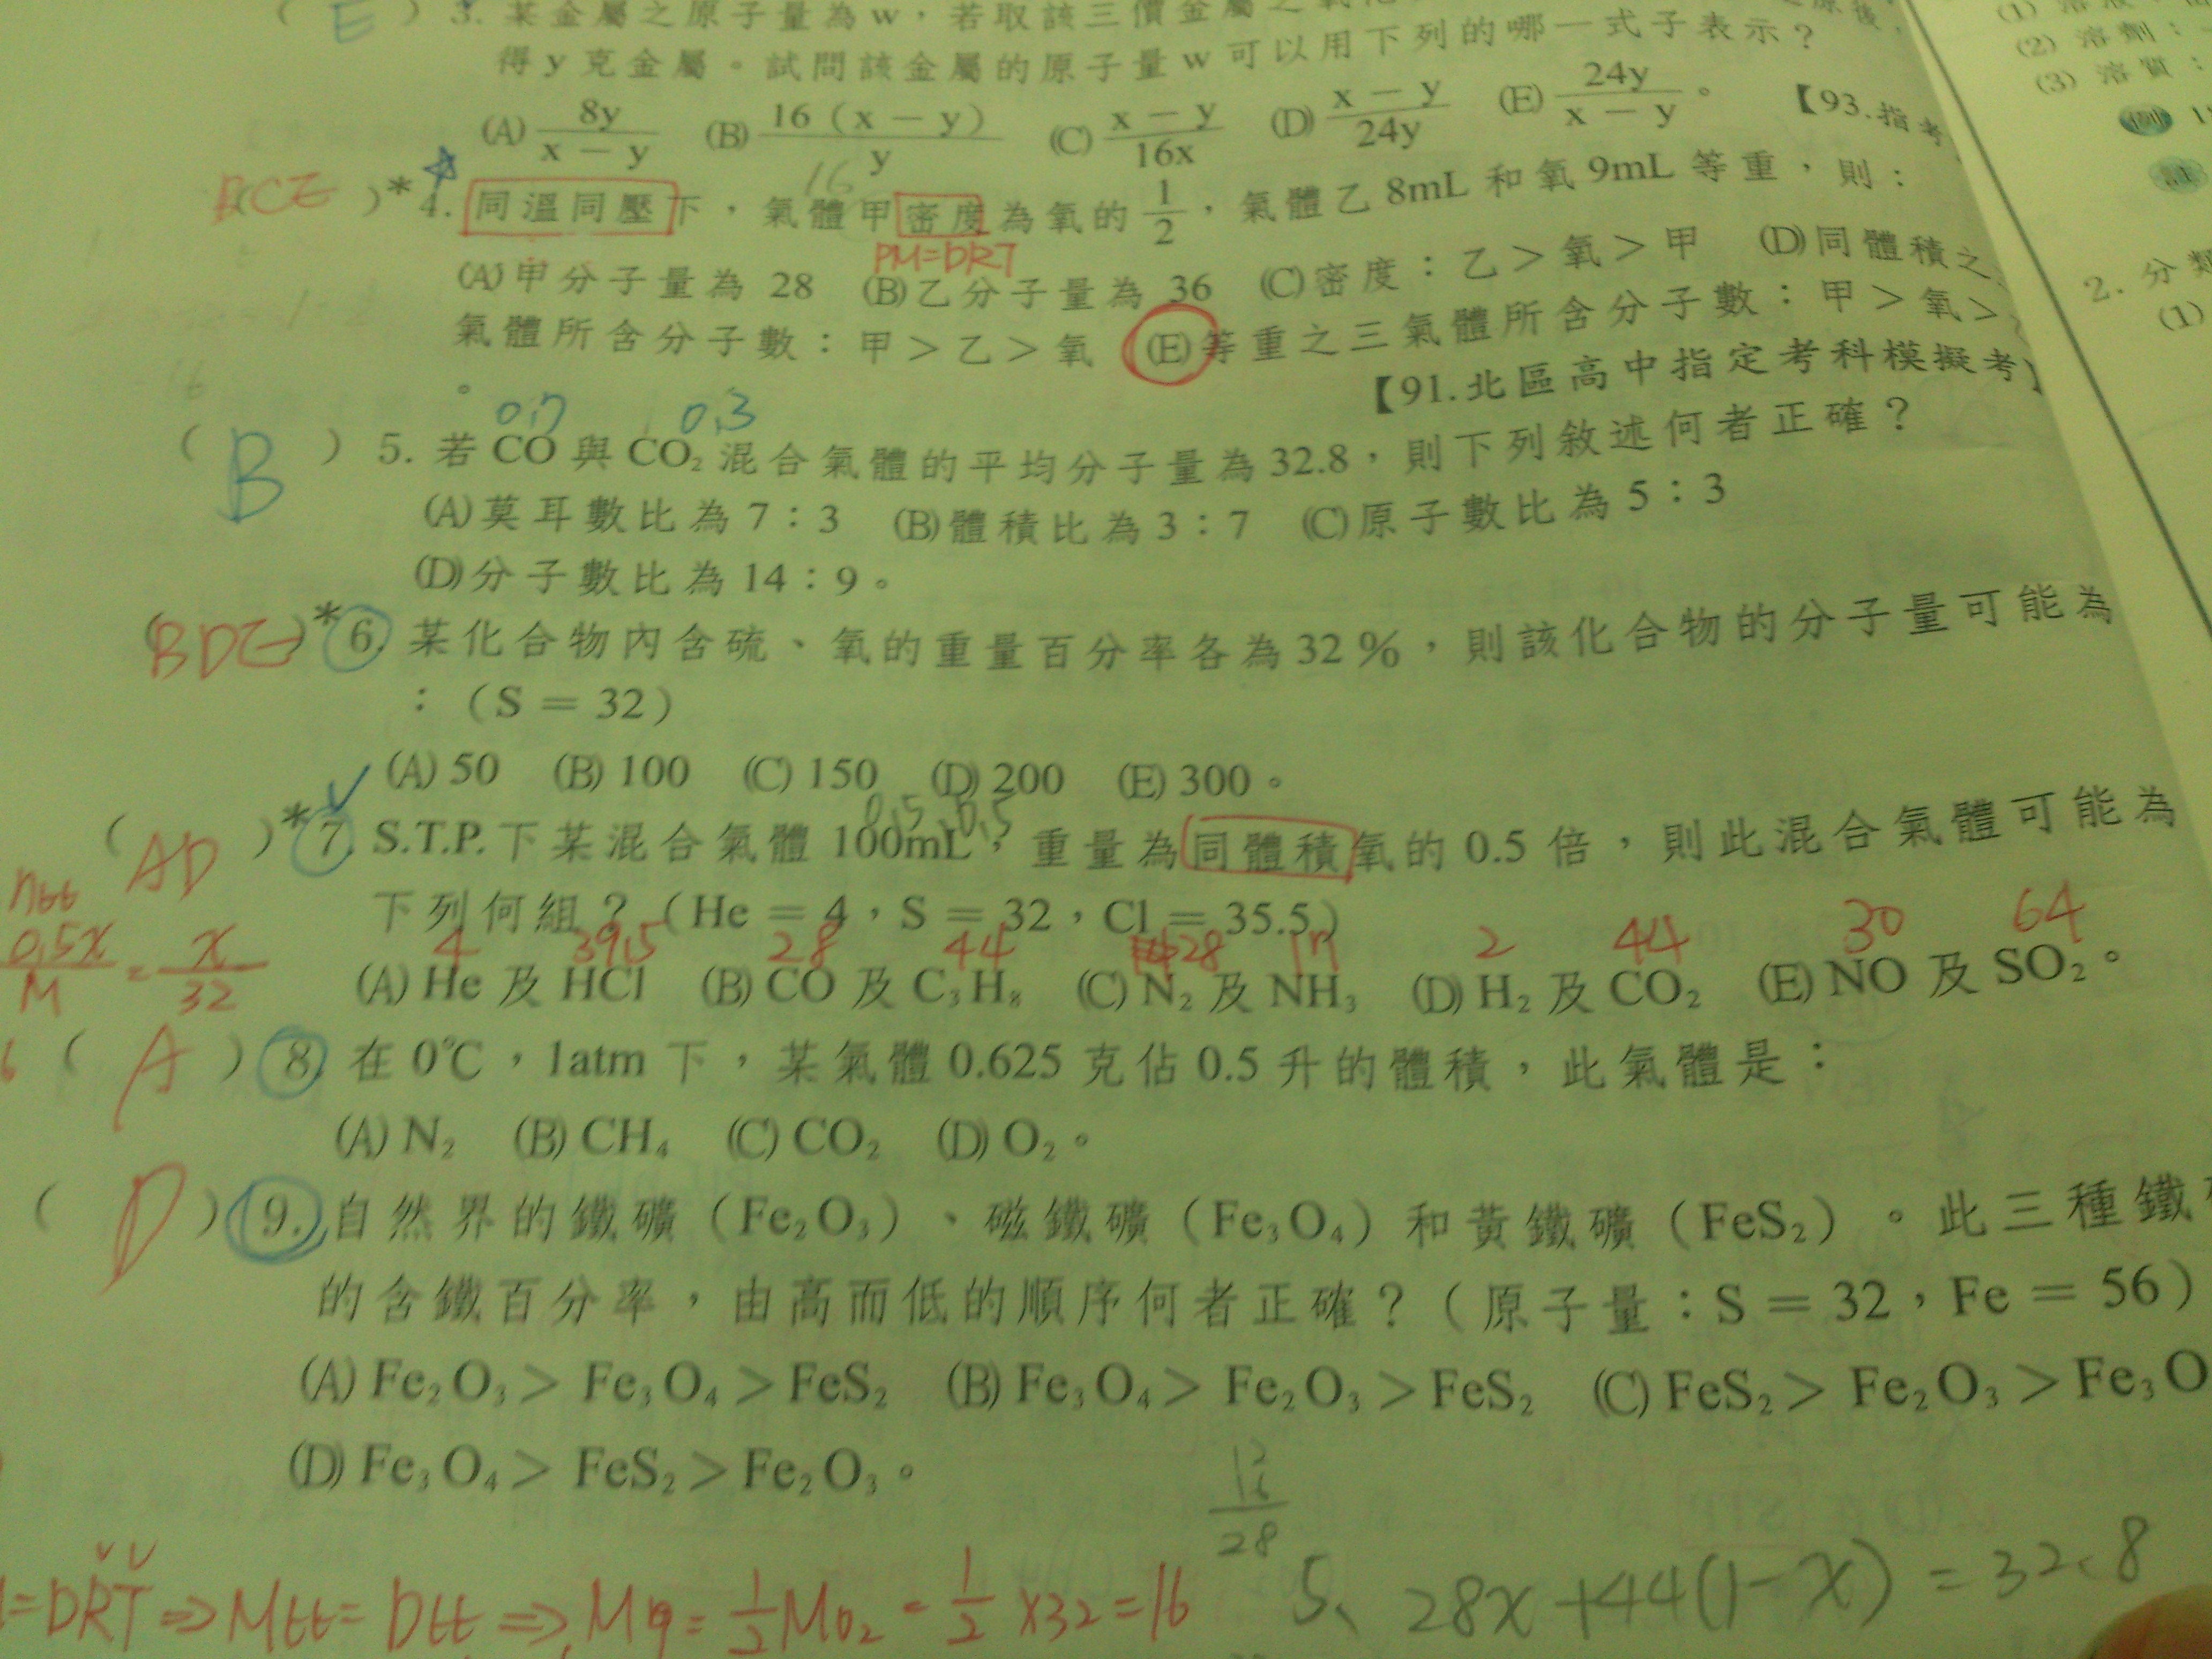 ( E ) 3. 某金屬之原子量為w，若取該三價金屬之氧化
得y克金屬。試問該金屬的原子量w可以用下列的哪一式子表示？
(A) 8y/(x－y) (B) 16（x－y）/y (C) (x－y)/16x (D) (x－y)/24y (E) 24y/(x－y)。 【93.指考
BCE )*4. 同溫同壓下，氣體甲密度為氧的1/2，氣體乙8mL和氧9mL等重，則：
16
PM=DRT
(A)甲分子量為 28 (B)乙分子量為 36 (C)密度：乙＞氧＞甲 (D)同體積之
氣體所含分子數：甲＞乙＞氧 (E)等重之三氣體所含分子數：甲＞氧＞
。 【91.北區高中指定考科模擬考】
0.7 0.3
( B ) 5. 若CO與CO₂混合氣體的平均分子量為32.8，則下列敘述何者正確？
(A)莫耳數比為7：3 (B)體積比為3：7 (C)原子數比為5：3
(D)分子數比為14：9。
(BDE)*6. 某化合物內含硫、氧的重量百分率各為32％，則該化合物的分子量可能為
：（S＝32）
(A)50 (B)100 (C)150 (D)200 (E)300。
0.5 0.5
( AD )*7. S.T.P.下某混合氣體100mL，重量為同體積氧的0.5倍，則此混合氣體可能為
下列何組？（He＝4，S＝32，Cl＝35.5）
0.5x/M = x/32
4 39.5 28 44 28 17 2 44 30 64
(A)He及HCl (B)CO及C₃H₈ (C)N₂及NH₃ (D)H₂及CO₂ (E)NO及SO₂。
( A ) 8. 在0℃，1atm下，某氣體0.625克佔0.5升的體積，此氣體是：
(A)N₂ (B)CH₄ (C)CO₂ (D)O₂。
( D ) 9. 自然界的鐵礦（Fe₂O₃）、磁鐵礦（Fe₃O₄）和黃鐵礦（FeS₂）。此三種鐵
的含鐵百分率，由高而低的順序何者正確？（原子量：S＝32，Fe＝56）
(A)Fe₂O₃＞Fe₃O₄＞FeS₂ (B)Fe₃O₄＞Fe₂O₃＞FeS₂ (C)FeS₂＞Fe₂O₃＞Fe₃O
(D)Fe₃O₄＞FeS₂＞Fe₂O₃。
28
=DRT ⇒ M比=D比 ⇒ M甲=1/2 MO₂=1/2×32=16
5、28x+44(1-x)=32.8
(1)
(2) 溶劑：
(3) 溶質：
例 1
註
2. 分類
(1)